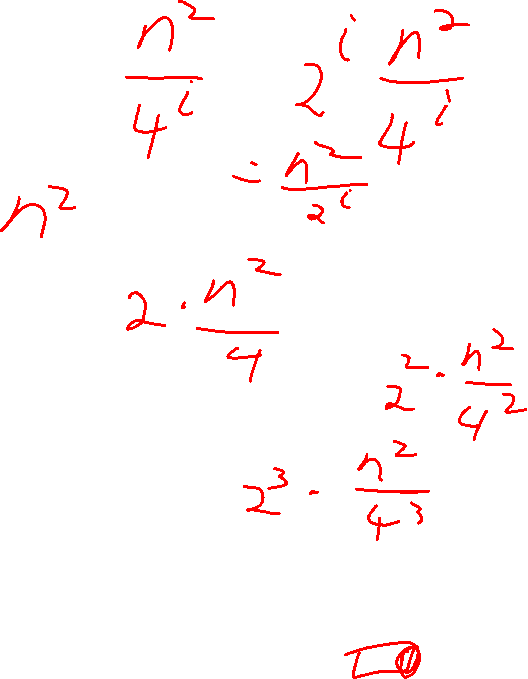 n²/4ⁱ   2ⁱ n²/4ⁱ
= n²/2ⁱ
n²
2 · n²/4
2² · n²/4²
2³ · n²/4³